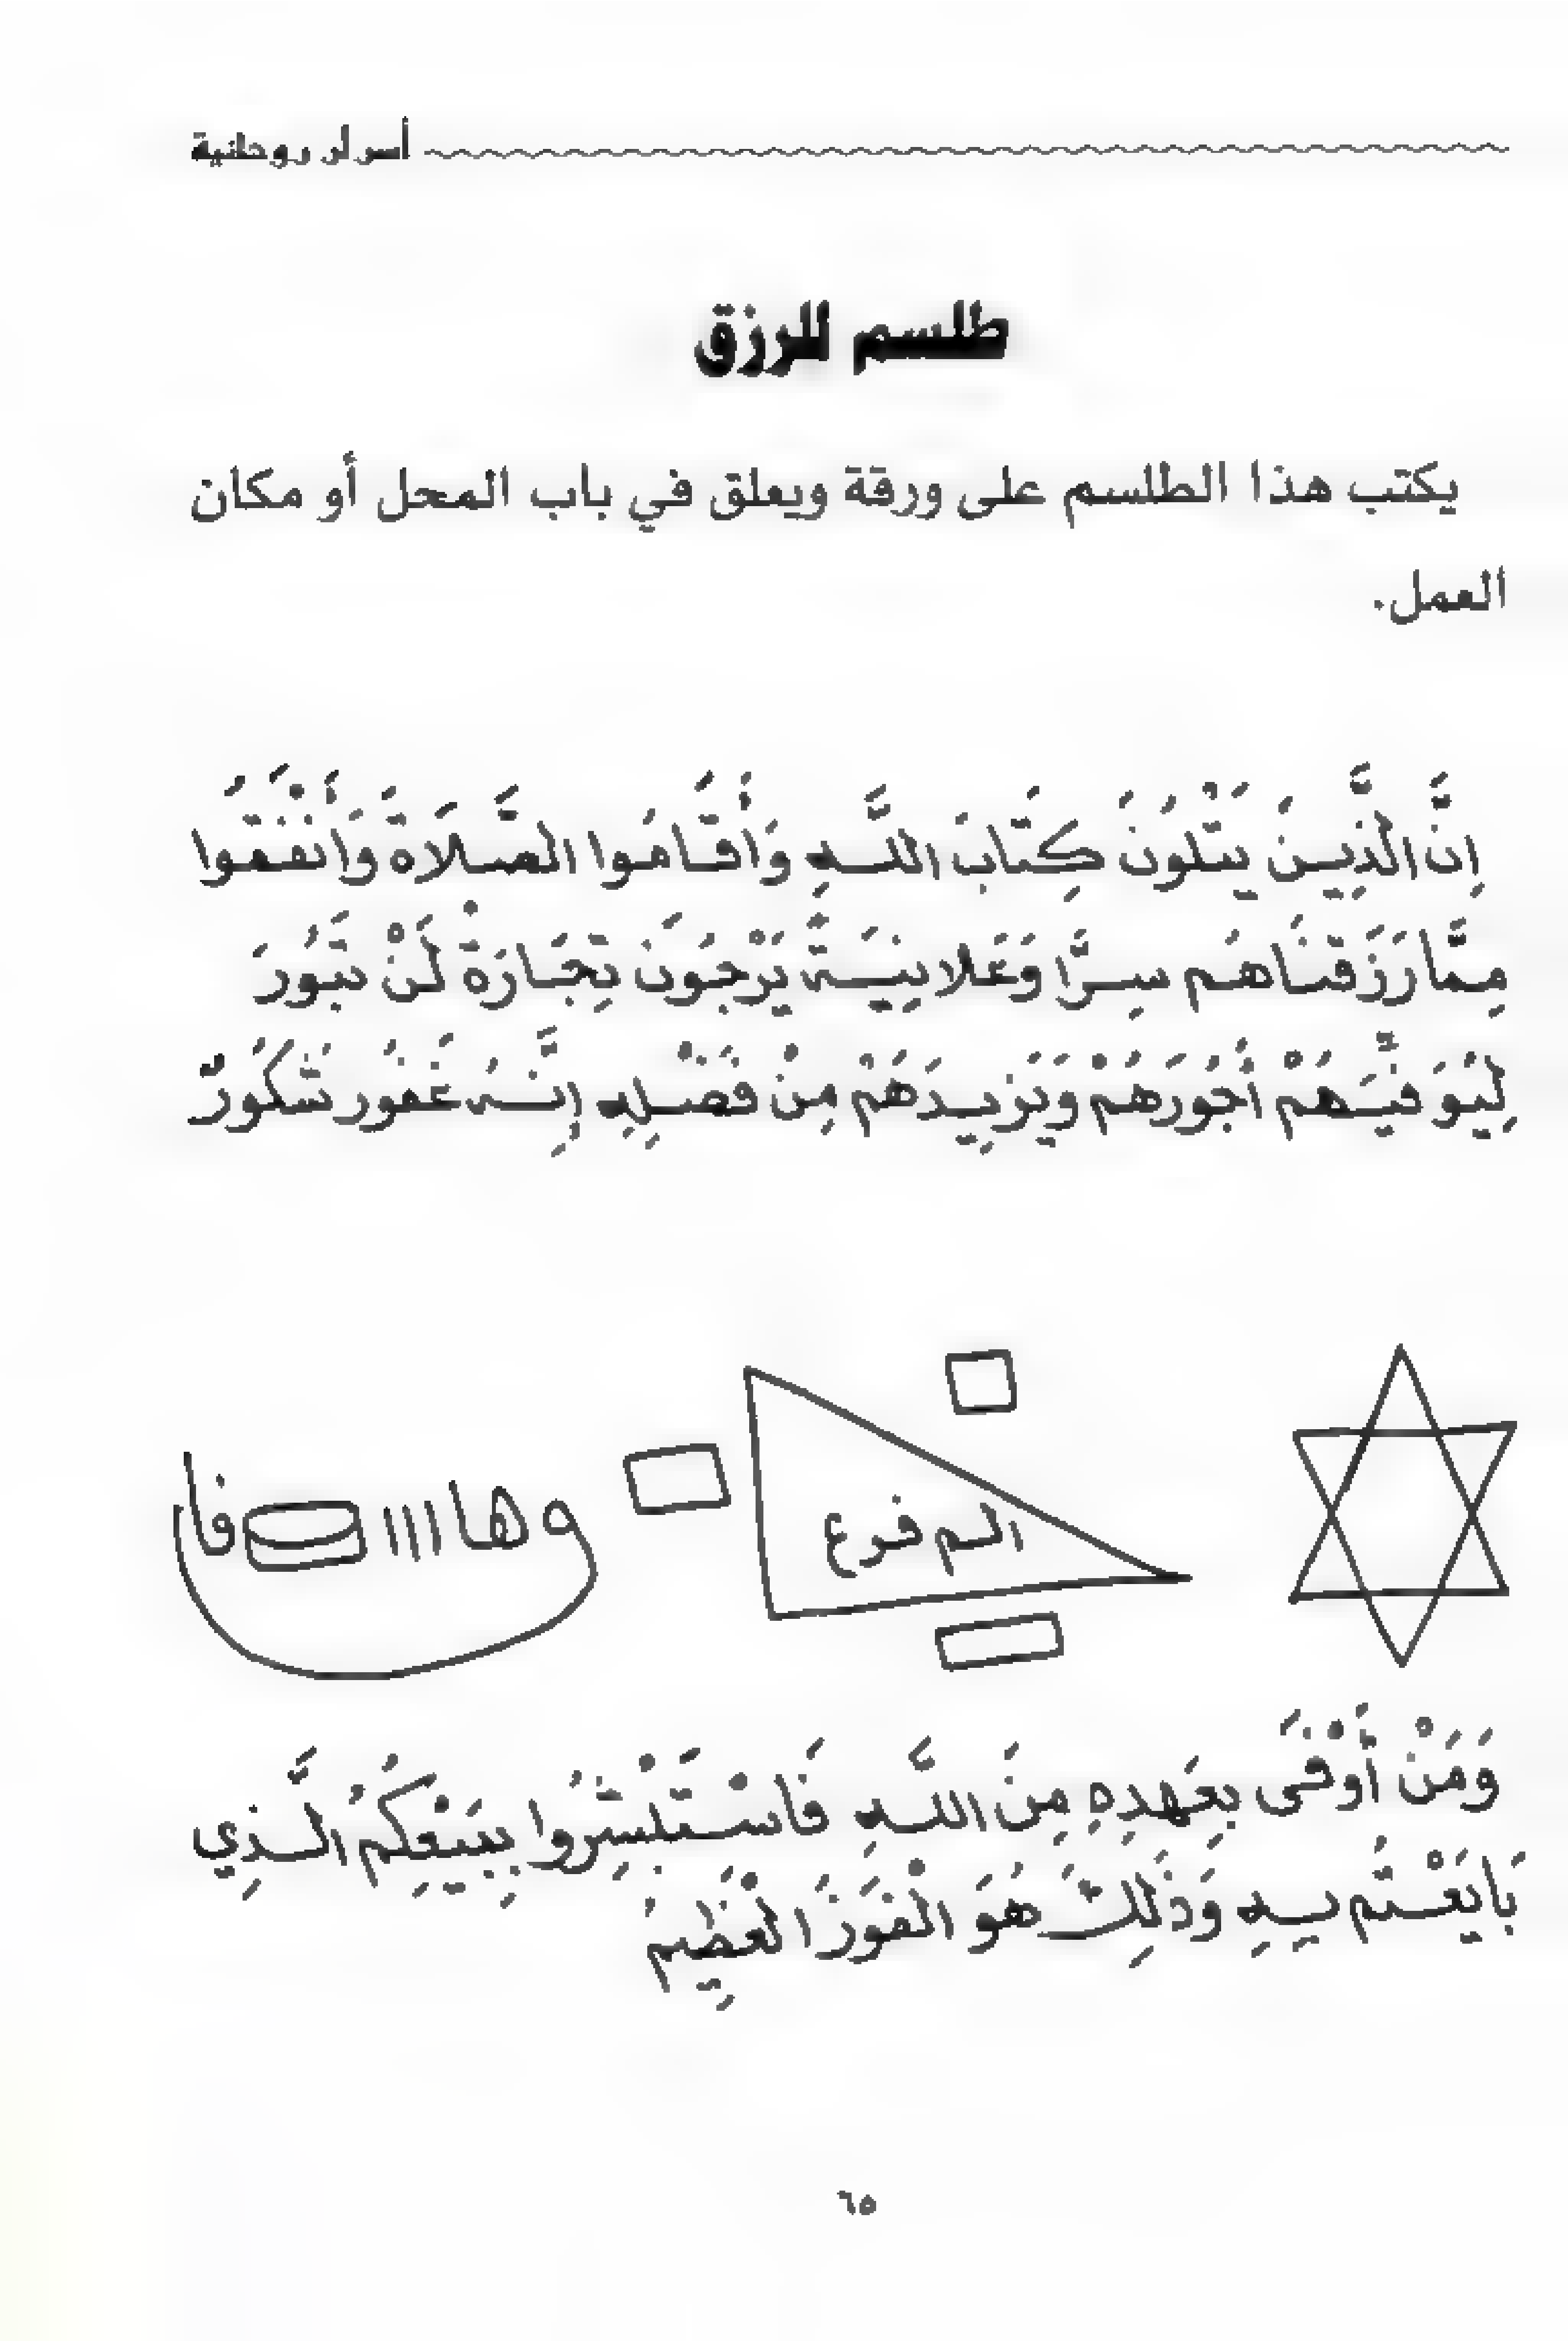 أسرار روحانية
طلسم للرزق
يكتب هذا الطلسم على ورقة ويعلق في باب المحل أو مكان
العمل.
إِنَّ الَّذِينَ يَتْلُونَ كِتَابَ اللَّهِ وَأَقَامُوا الصَّلَاةَ وَأَنْفَقُوا
مِمَّا رَزَقْنَاهُم سِرًّا وَعَلَانِيَةً يَرْجُونَ تِجَارَةً لَنْ تَبُورَ
لِيُوَفِّيَهُمْ أُجُورَهُمْ وَيَزِيدَهُمْ مِنْ فَضْلِهِ إِنَّهُ غَفُور شَكُورٌ
الم فرع
وها ااا فا
وَمَنْ أَوْفَى بِعَهدِهِ مِنَ اللَّهِ فَاسْتَبْشِرُوا بِبَيْعِكُمُ الَّذِي
بَايَعْتُم بِهِ وَذَلِكَ هُوَ الْفَوْزُ الْعَظِيمُ
٦٥